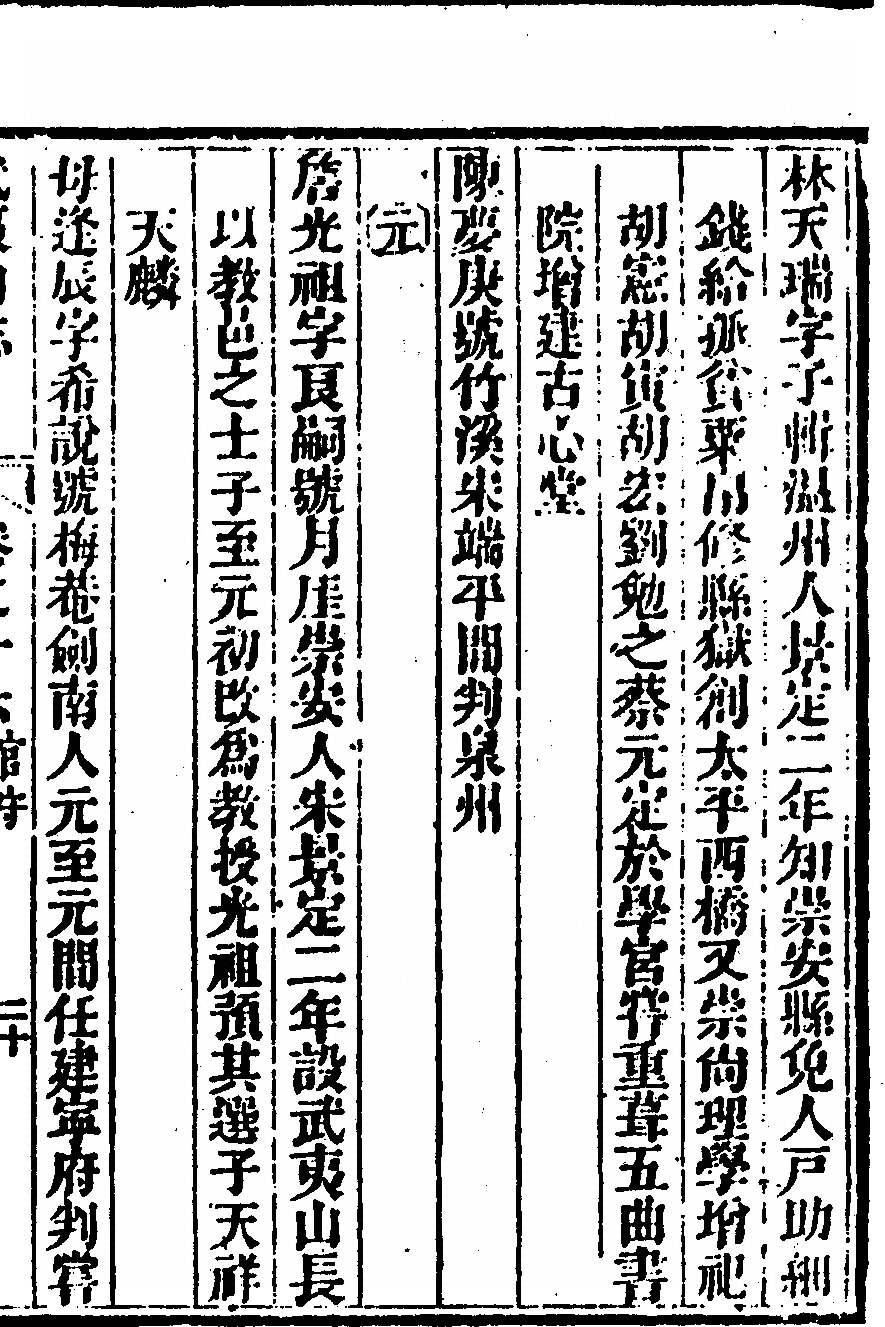 林天瑞字子輯溫州人景定二年知崇安縣免人戶助糾
錢給孤貧粟用修縣獄創太平西橋又崇尚理學增祀
胡憲胡寅胡宏劉勉之蔡元定於學宮嘗重葺五曲書
院增建古心堂
陳夢庚號竹溪宋端平間判泉州
元
詹光祖字良嗣號月崖崇安人宋景定二年設武夷山長
以教邑之士子至元初改為教授光祖預其選子天祥
天麟
毋逢辰字希說號梅菴劍南人元至元間任建寧府判嘗
館
二十